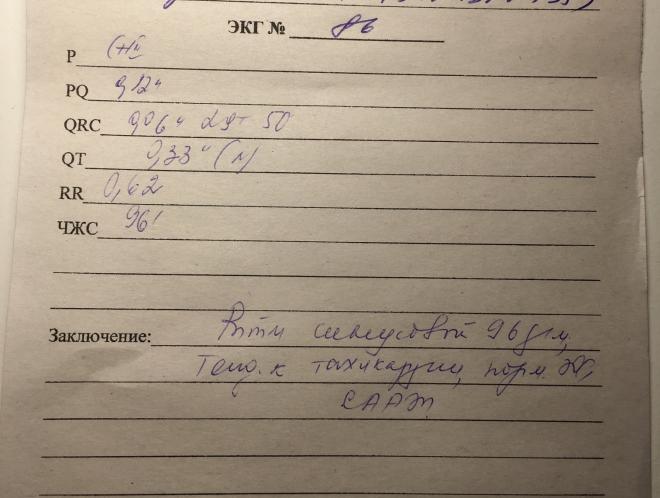 ЭКГ № 86
P (+)II
PQ 0,12"
QRC 0,06" α QRS 50
QT 0,33" (N)
RR 0,62
ЧЖС 96'
Заключение: Ритм синусовой 96
Тенд. к тахикардии, норм.